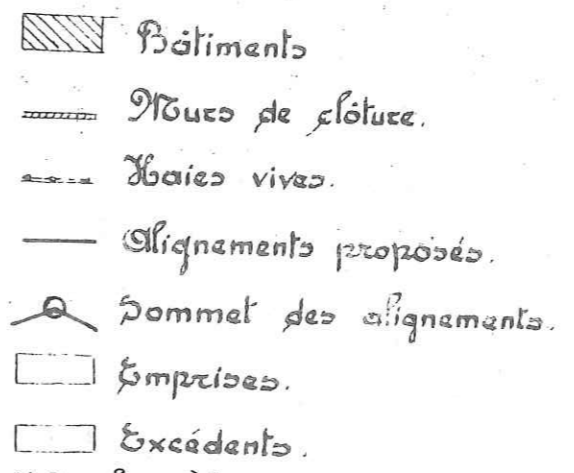 Bâtiments
Murs de clôture.
Haies vives.
Alignements proposés.
Sommet des alignements.
Emprises.
Excédents.